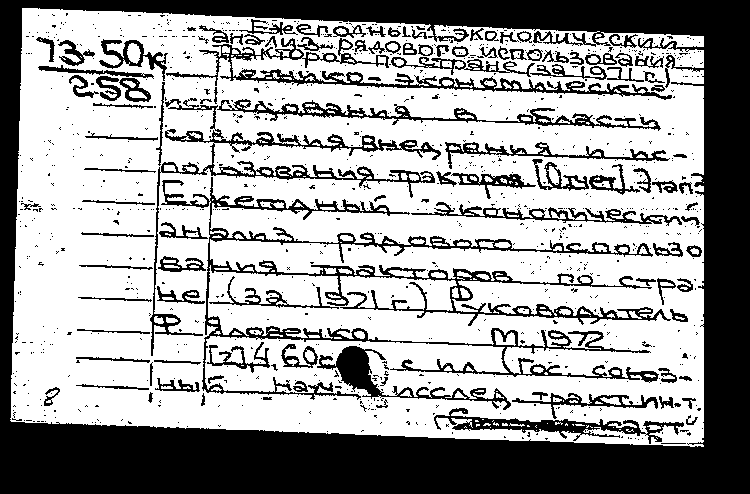 Ежегодный экономический
анализ рядового использования
тракторов по стране (за 1971 г.)
73-50к
258
Технико-экономические
исследования в области
создания, внедрения и ис-
пользования тракторов. [Отчет]. Этап 3
Ежегодный экономический
анализ рядового использо
вания тракторов по стра-
не (за 1971 г.) Руководитель
Ф. Яловенко. М., 1972
[2], 4, 60с с ил (Гос. союз-
ный науч. исслед. тракт. ин-т.
карт.
8